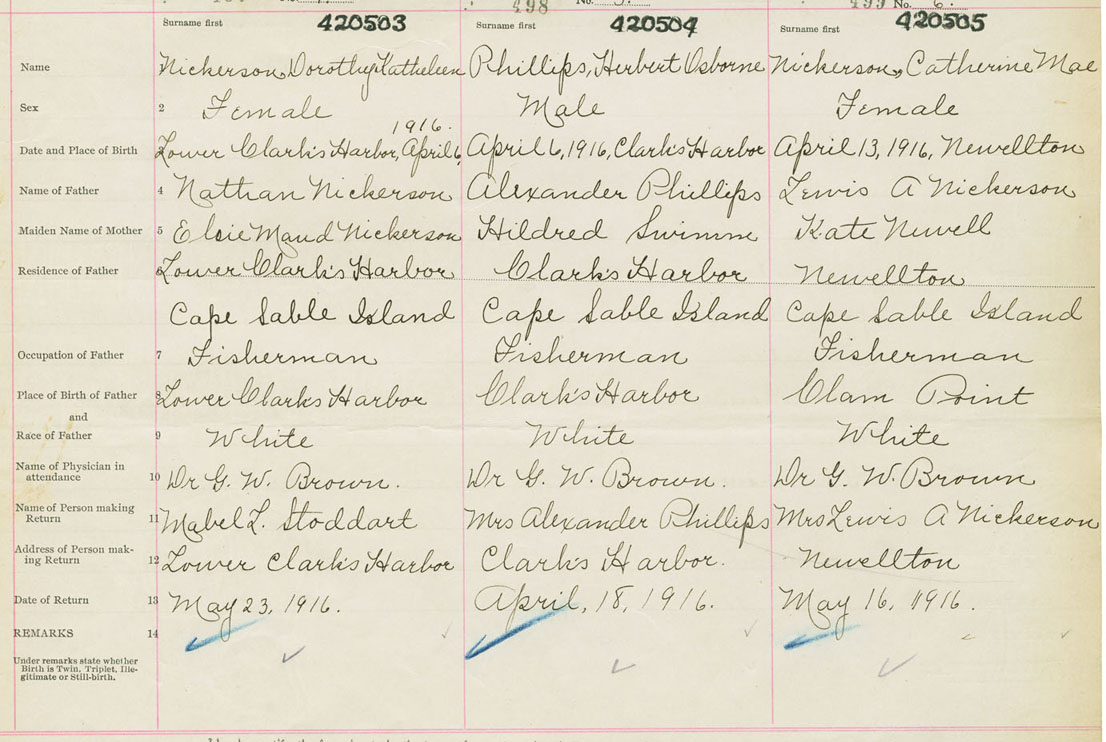 498 No. 499 No. 6.
Surname first 420503 Surname first 420504 Surname first 420505
Name Nickerson, Dorothy Kathleen Phillips, Herbert Osborne Nickerson, Catherine Mae
Sex 2 Female Male Female
1916.
Date and Place of Birth Lower Clark's Harbor, April 6, April 6, 1916, Clark's Harbor April 13, 1916, Newellton
Name of Father 4 Nathan Nickerson Alexander Phillips Lewis A Nickerson
Maiden Name of Mother 5 Elsie Maud Nickerson Hildred Swimm Kate Newell
Residence of Father 6 Lower Clark's Harbor Clark's Harbor Newellton
Cape Sable Island Cape Sable Island Cape Sable Island
Occupation of Father 7 Fisherman Fisherman Fisherman
Place of Birth of Father 8 Lower Clark's Harbor Clark's Harbor Clam Point
and
Race of Father 9 White White White
Name of Physician in
attendance 10 Dr G. W. Brown. Dr G. W. Brown. Dr G. W. Brown
Name of Person making
Return 11 Mabel L. Stoddart Mrs Alexander Phillips Mrs Lewis A Nickerson
Address of Person mak-
ing Return 12 Lower Clark's Harbor Clark's Harbor. Newellton
Date of Return 13 May 23, 1916. April, 18, 1916. May 16, 1916.
REMARKS 14
Under remarks state whether
Birth is Twin, Triplet, Ille-
gitimate or Still-birth.